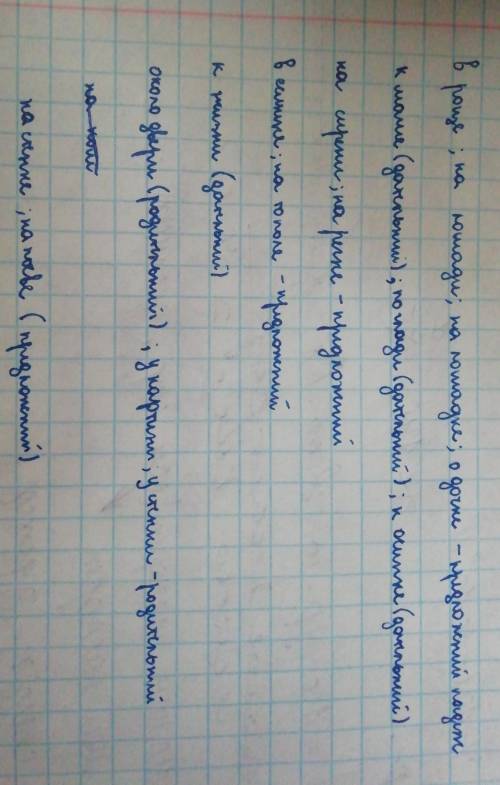 в роще; на лошади; на лошадке; о дочке - предложений падеж
к маме (дательный); по глади (дательный); к осинке (дательный)
на сирени; на репке - предложений
в ельнике; на тополе - предложений
к жизни (дательный)
около двери (родительный); у картины; у стенки - родительный
на
на степке; на иве (предложений)